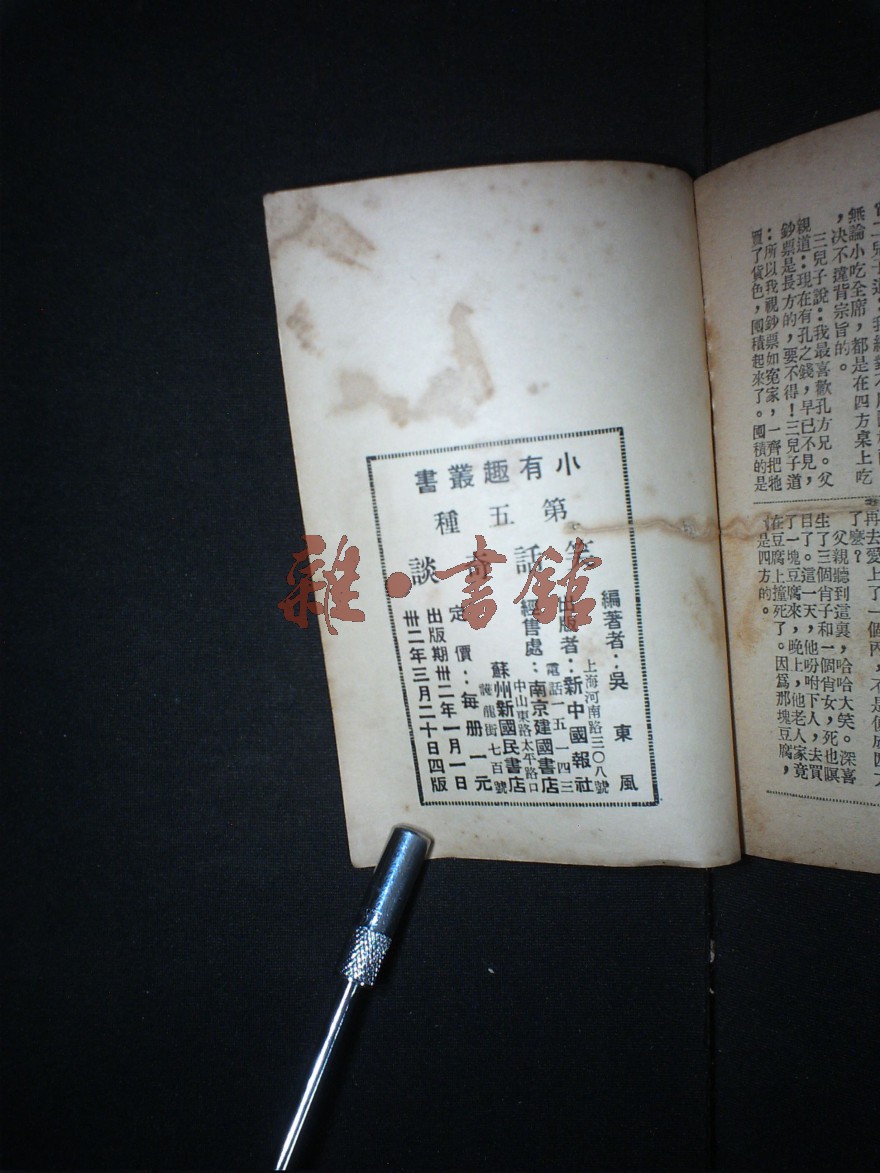 無論小吃全席，都是在四方桌上吃
，决不違背宗旨的。
三兒子說：我最喜歡孔方兄。父
親道：現在有孔之錢，早已不見，
鈔票是長方的，要不得！三兒子道
：所以我視鈔票如寃家，一齊把牠
買了貨色，囤積起來了。囤積的是
再去愛上了一個丙，不是
了麽？
父親聽到這裏，哈哈大笑。深喜
生了三個肖子和一個肖女，死也瞑
目了。這一天，他吩咐下人，去買
了一塊豆腐來，晚上，他老人家竟
在豆腐上撞死了。因爲那塊豆腐，
是四方的。
小有趣叢書
第五種
笑話奇談
編著者：吳東風
上海河南路三〇八號
出版者：新中國報社
電話一五一四三
經售處：南京建國書店
中山東路太平路口
蘇州新國民書店
護龍街七百號
定價：每册一元
出版期卅二年一月一日
卅二年三月二十日四版
雜·書館